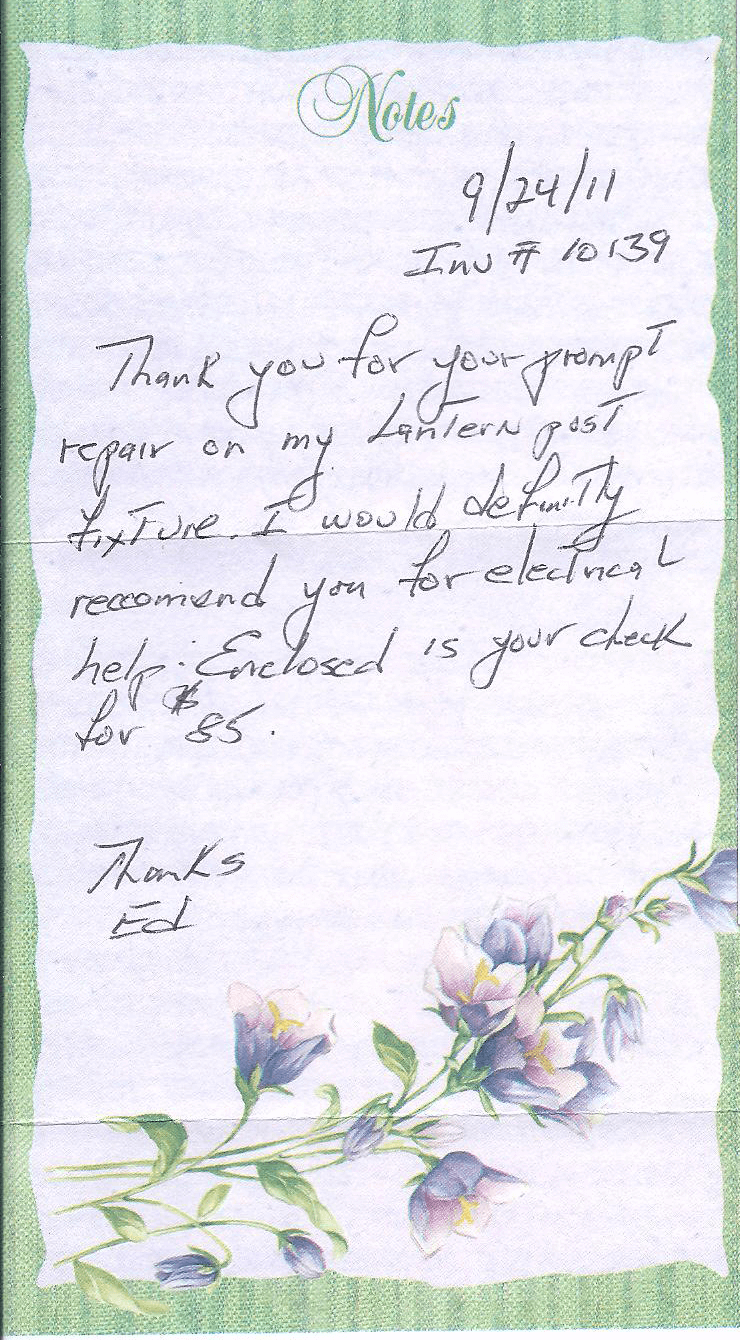 Notes
9/24/11
Inv # 10139
Thank you for your prompt
repair on my Lantern post
fixture. I would definitly
reccomend you for electrical
help. Enclosed is your check
for $85.
Thanks
Ed